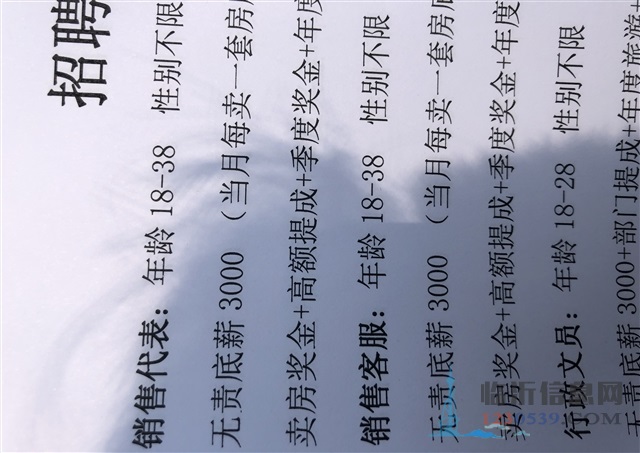 招聘
销售代表：年龄 18-38 性别不限
无责底薪 3000 （当月每卖一套房底
卖房奖金+高额提成+季度奖金+年度
销售客服：年龄 18-38 性别不限
无责底薪 3000 （当月每卖一套房底
卖房奖金+高额提成+季度奖金+年度
行政文员：年龄 18-28 性别不限
无责底薪 3000+部门提成+年度旅游+
临沂信息网